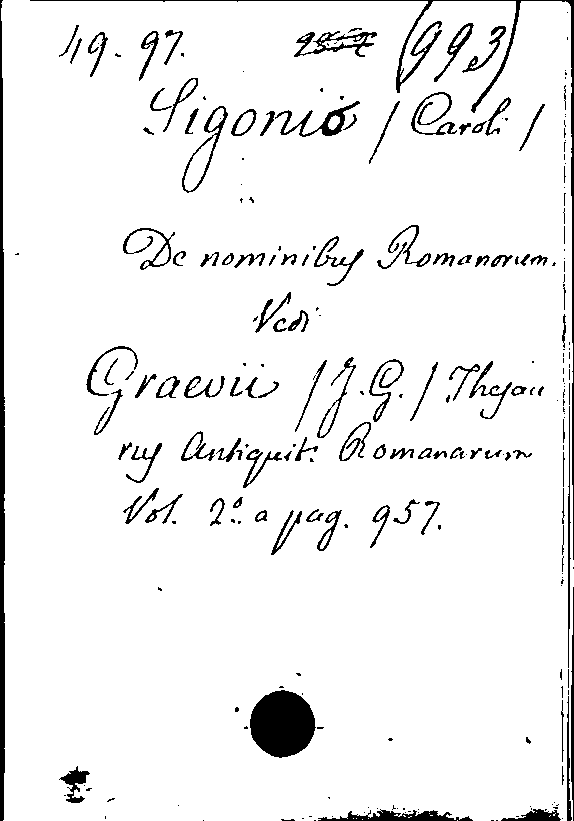 49. 97. (993)
Sigonio / Caroli /
De nominibus Romanorum.
Vedi
Graevii / J. G. / Thesau
rus Antiquit: Romanarum
Vol. 2º a pag. 957.